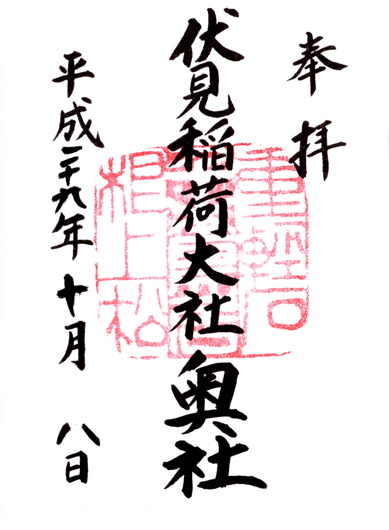 奉拝
伏見稲荷大社奥社
平成二十九年十月八日